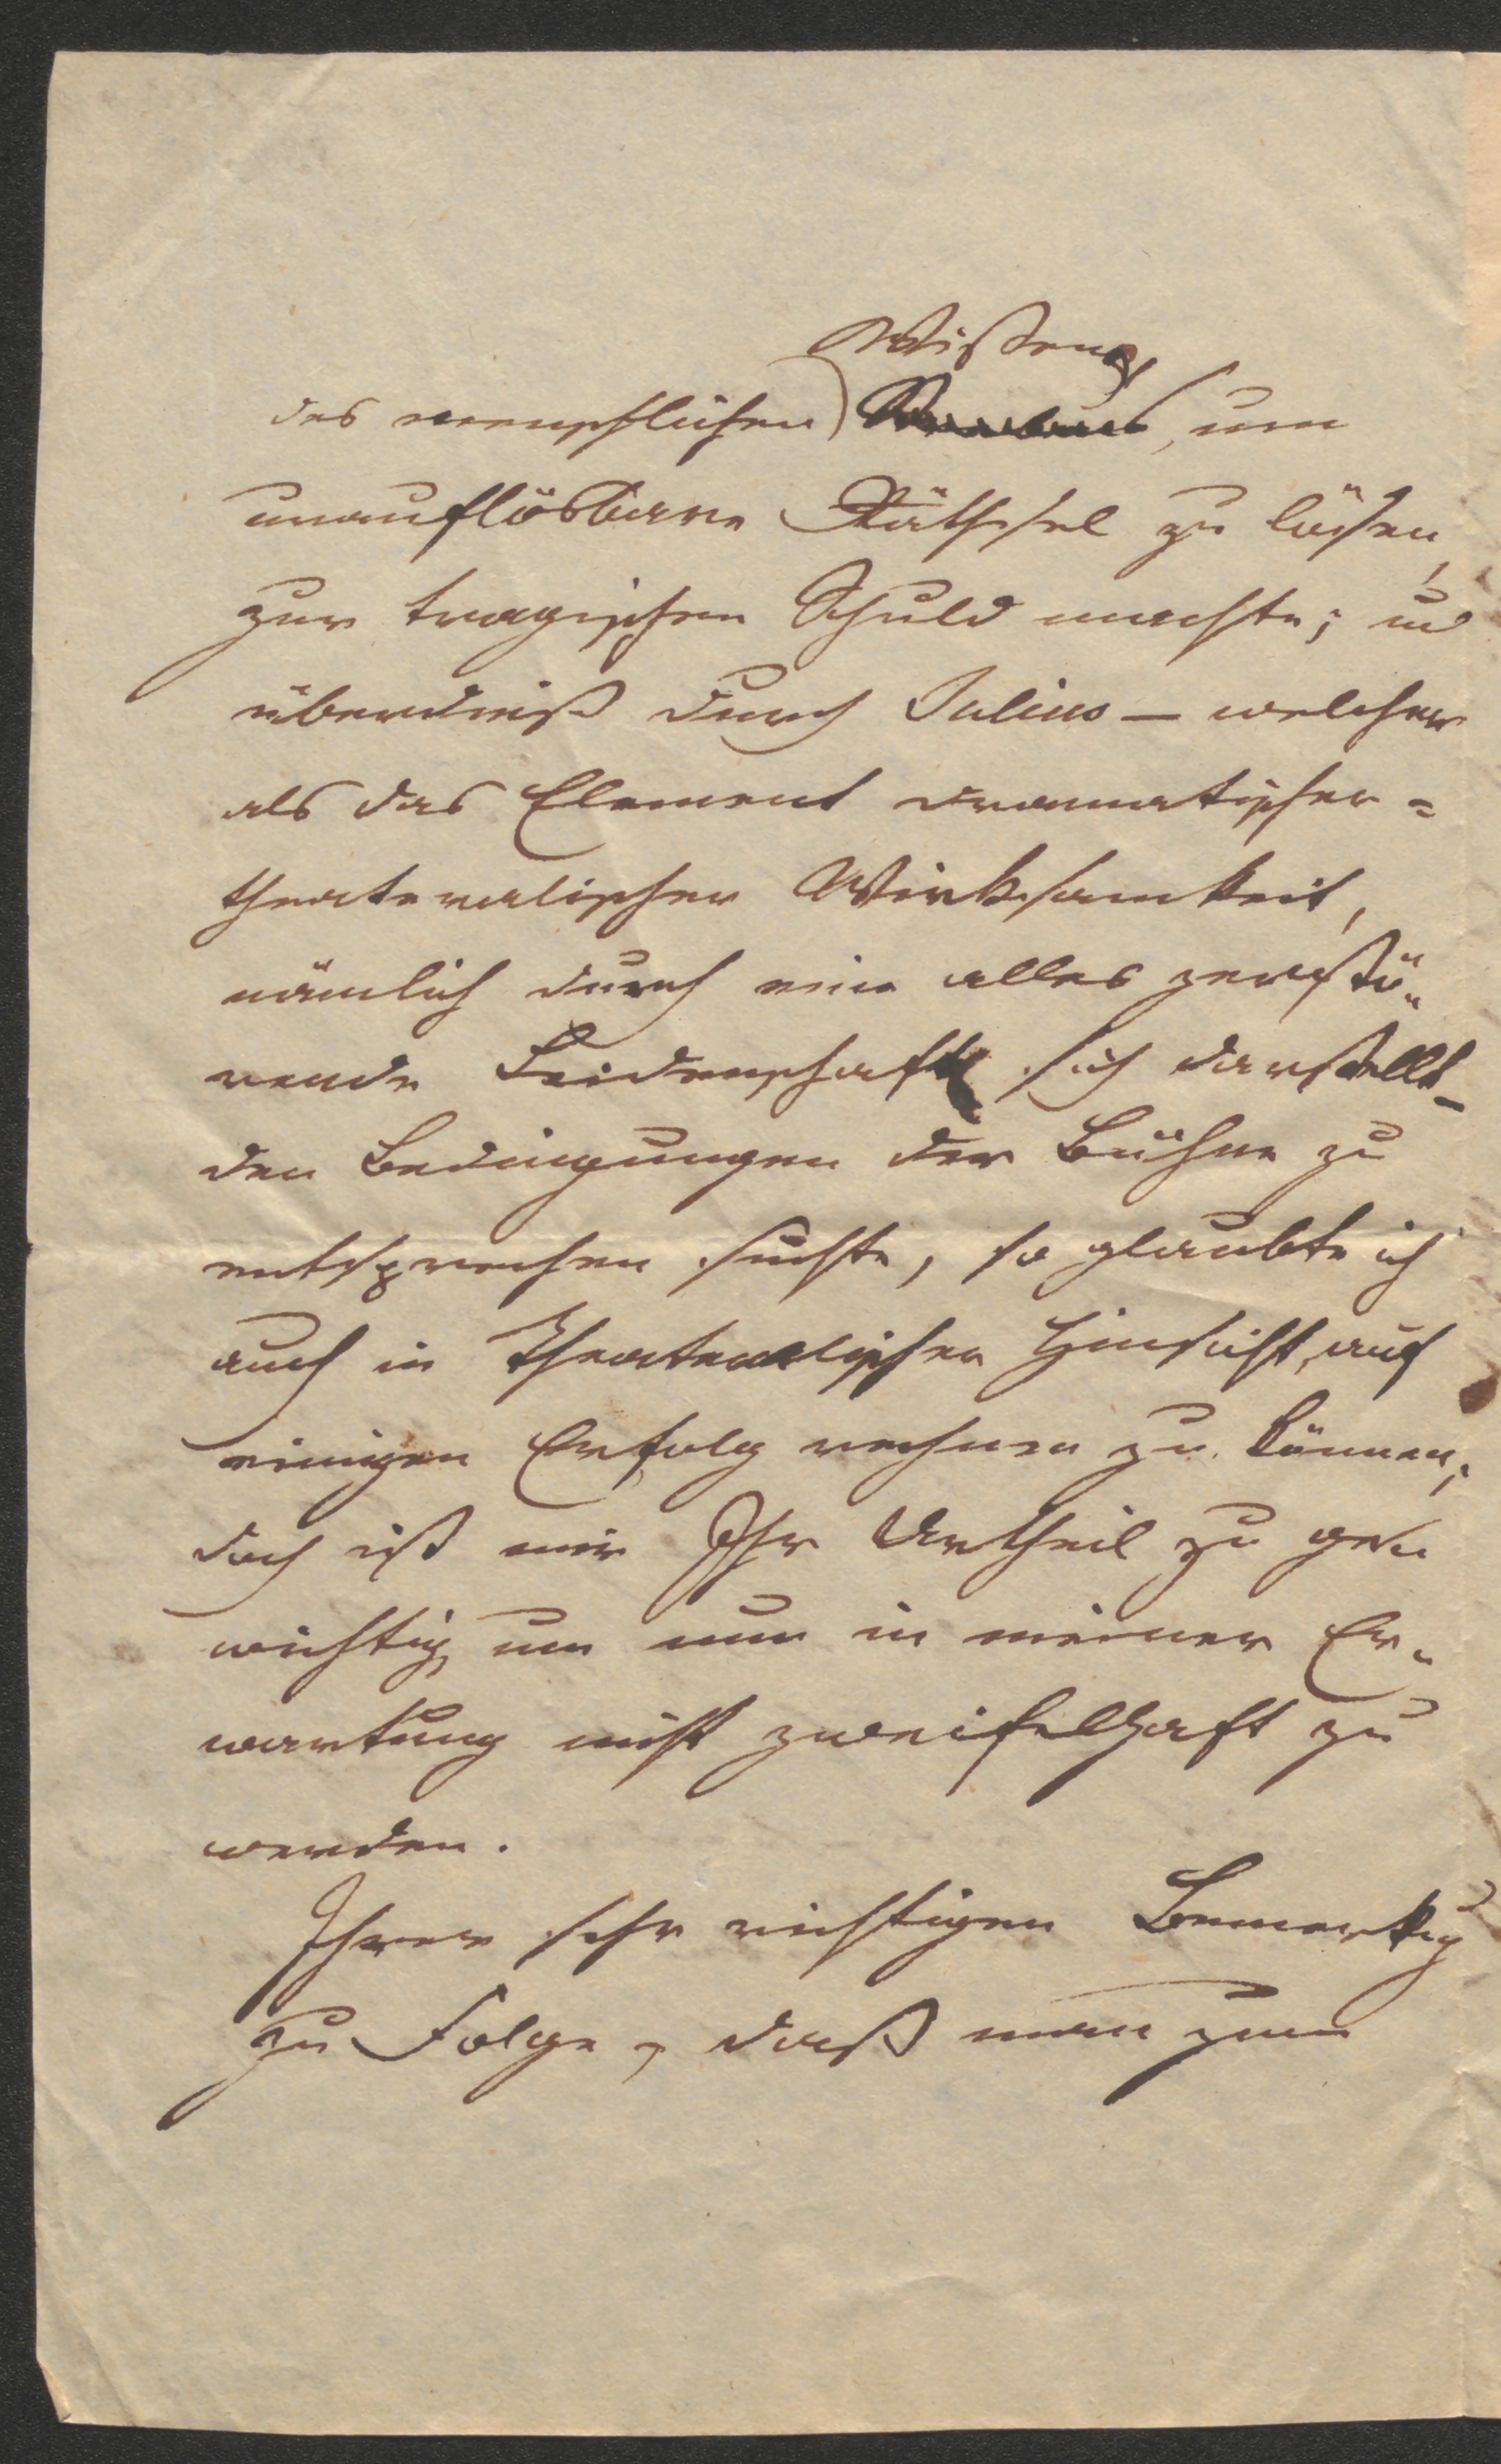 Wissens
des menschlichen um
unauflösbare Räthsel zu lösen,
zur tragischen Schuld machte; u
überdieß durch Julius — welcher
als das Element dramatischer-
theatralischer Wirksamkeit,
nämlich durch eine alles zerstö-
rende Leidenschaft sich darstellt -
den Bedingungen der Bühne zu
entsprechen suchte, so glaubte ich
auch in theatralischer Hinsicht, auf
einigen Erfolg rechnen zu können;
doch ist mir Ihr Urtheil zu ge-
wichtig um nun in meiner Er-
wartung nicht zweifelhaft zu
werden.
Ihrer sehr richtigen Bemerkug
zu Folge, daß man zum